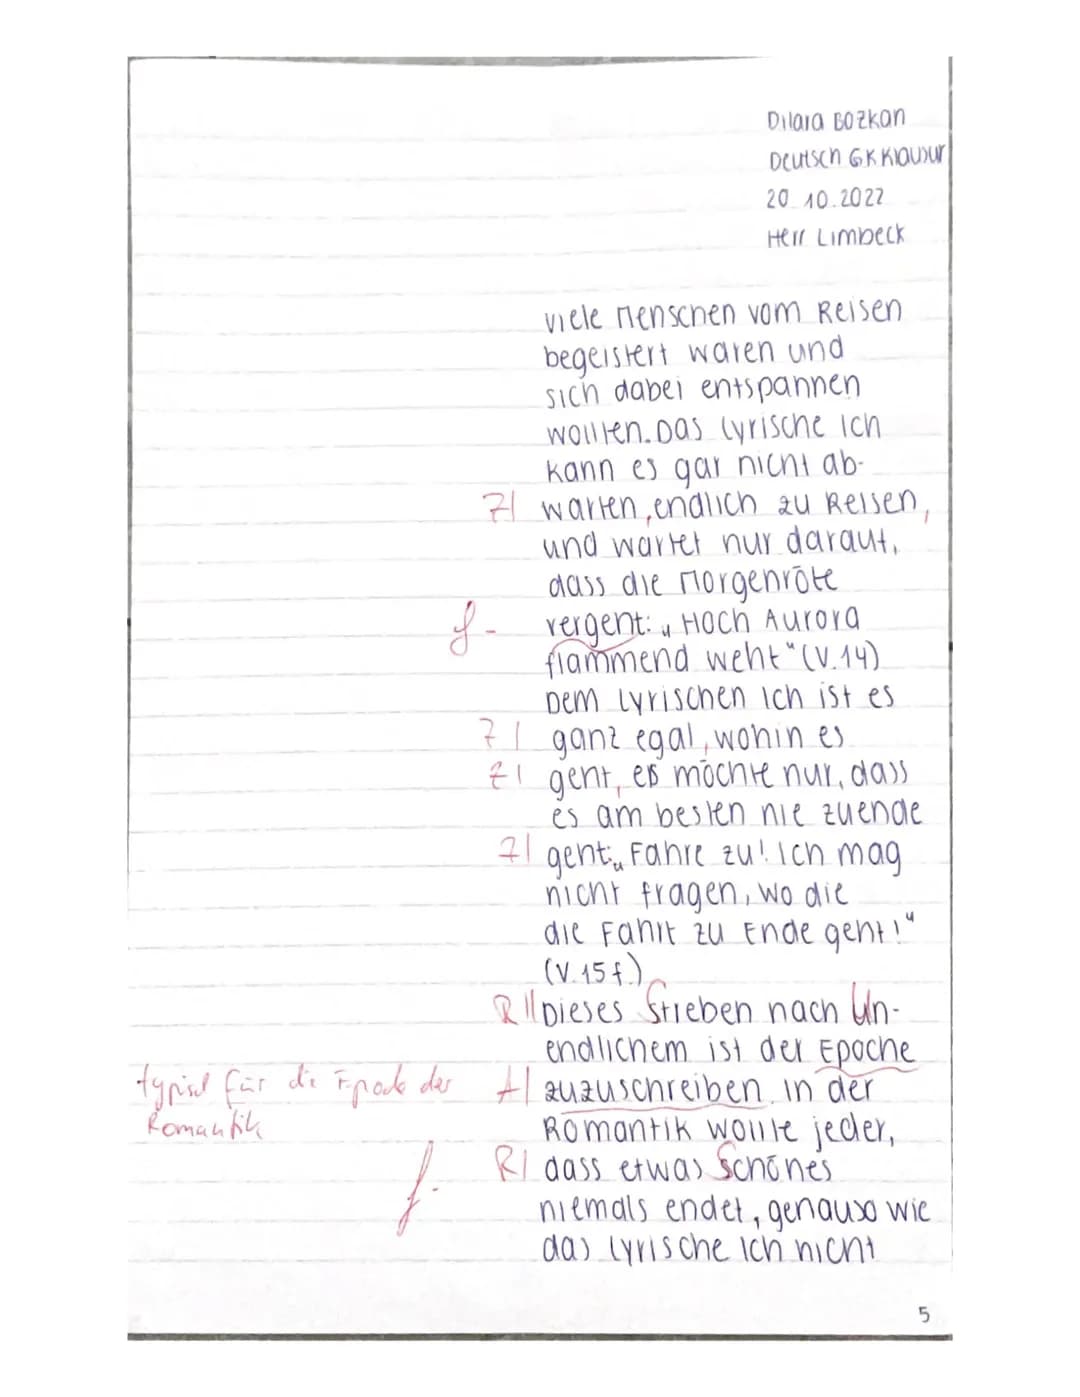 Dilara Bozkan
Deutsch GK Klausur
20.10.2022
Herr Limbeck
viele Menschen vom Reisen
begeistert waren und
sich dabei entspannen
wollten. Das lyrische Ich
kann es gar nicht ab-
Z| warten, endlich zu Reisen,
und wartet nur darauf,
dass die Morgenröte
f- vergeht: „Hoch Aurora
flammend weht" (V.14)
Dem lyrischen Ich ist es
Z| ganz egal, wohin es
Z| geht, es möchte nur, dass
es am besten nie zuende
Z| geht: „Fahre zu! Ich mag
nicht fragen, wo die
die Fahrt zu Ende geht!"
(V.15f.)
R|| Dieses Streben nach Un-
endlichem ist der Epoche
typisch für die Epoche der A| zuzuschreiben. In der
Romantik Romantik wollte jeder,
R| dass etwas Schönes
f. niemals endet, genauso wie
das lyrische Ich nicht
5